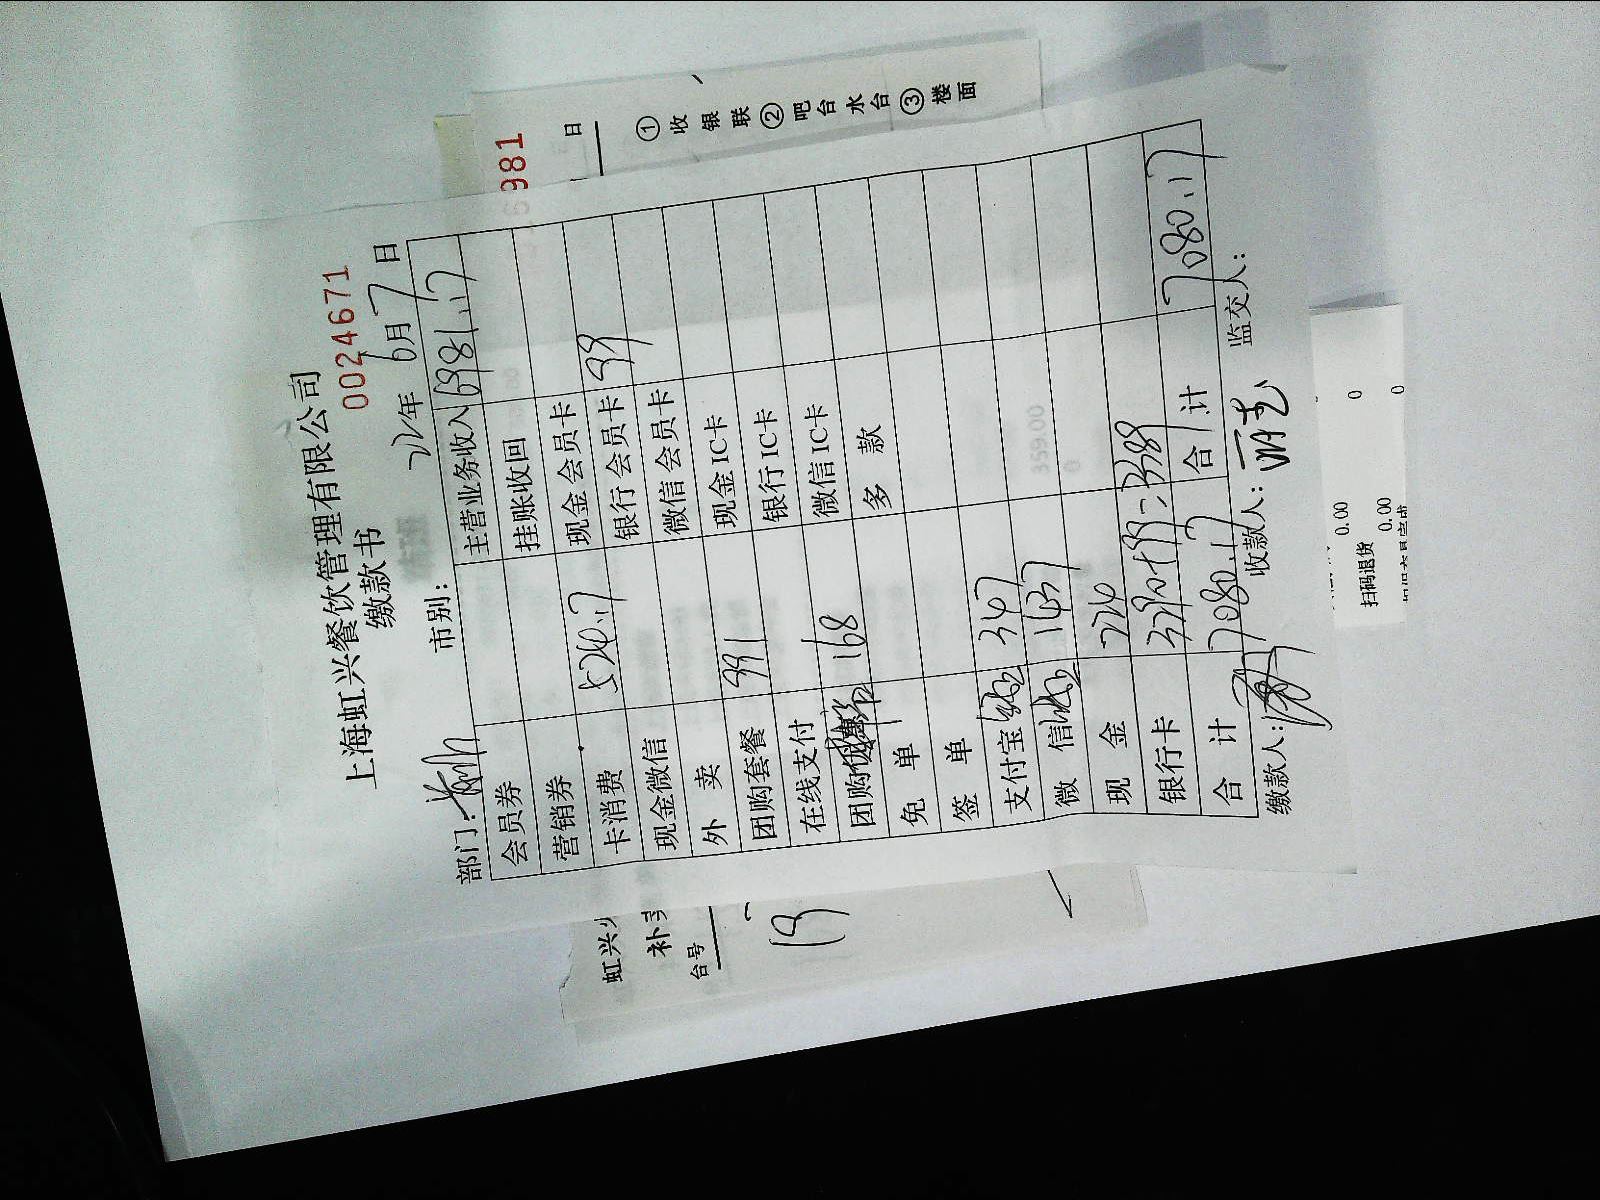 上海虹兴餐饮管理有限公司
缴款书
0024671
市别：
22年 6月7日
部门：
会员券 主营业务收入 6981.17
营销券 挂账收回
卡消费 524.17 现金会员卡
现金微信 银行会员卡 99
外 卖 微信会员卡
团购套餐 991 现金IC卡
在线支付 银行IC卡
团购 168 微信IC卡
免 单 多 款
签 单
支付宝 347
微 信 1437
现 金 226
银行卡 3290+99=3389
合 计 7080.17 合 计 7080.17
缴款人： 收款人： 监交人：
981
日
①收银联②吧台水台③楼面
虹兴
补
台号
13
359.00
0
0.00 0
扫码退货
0.00 0